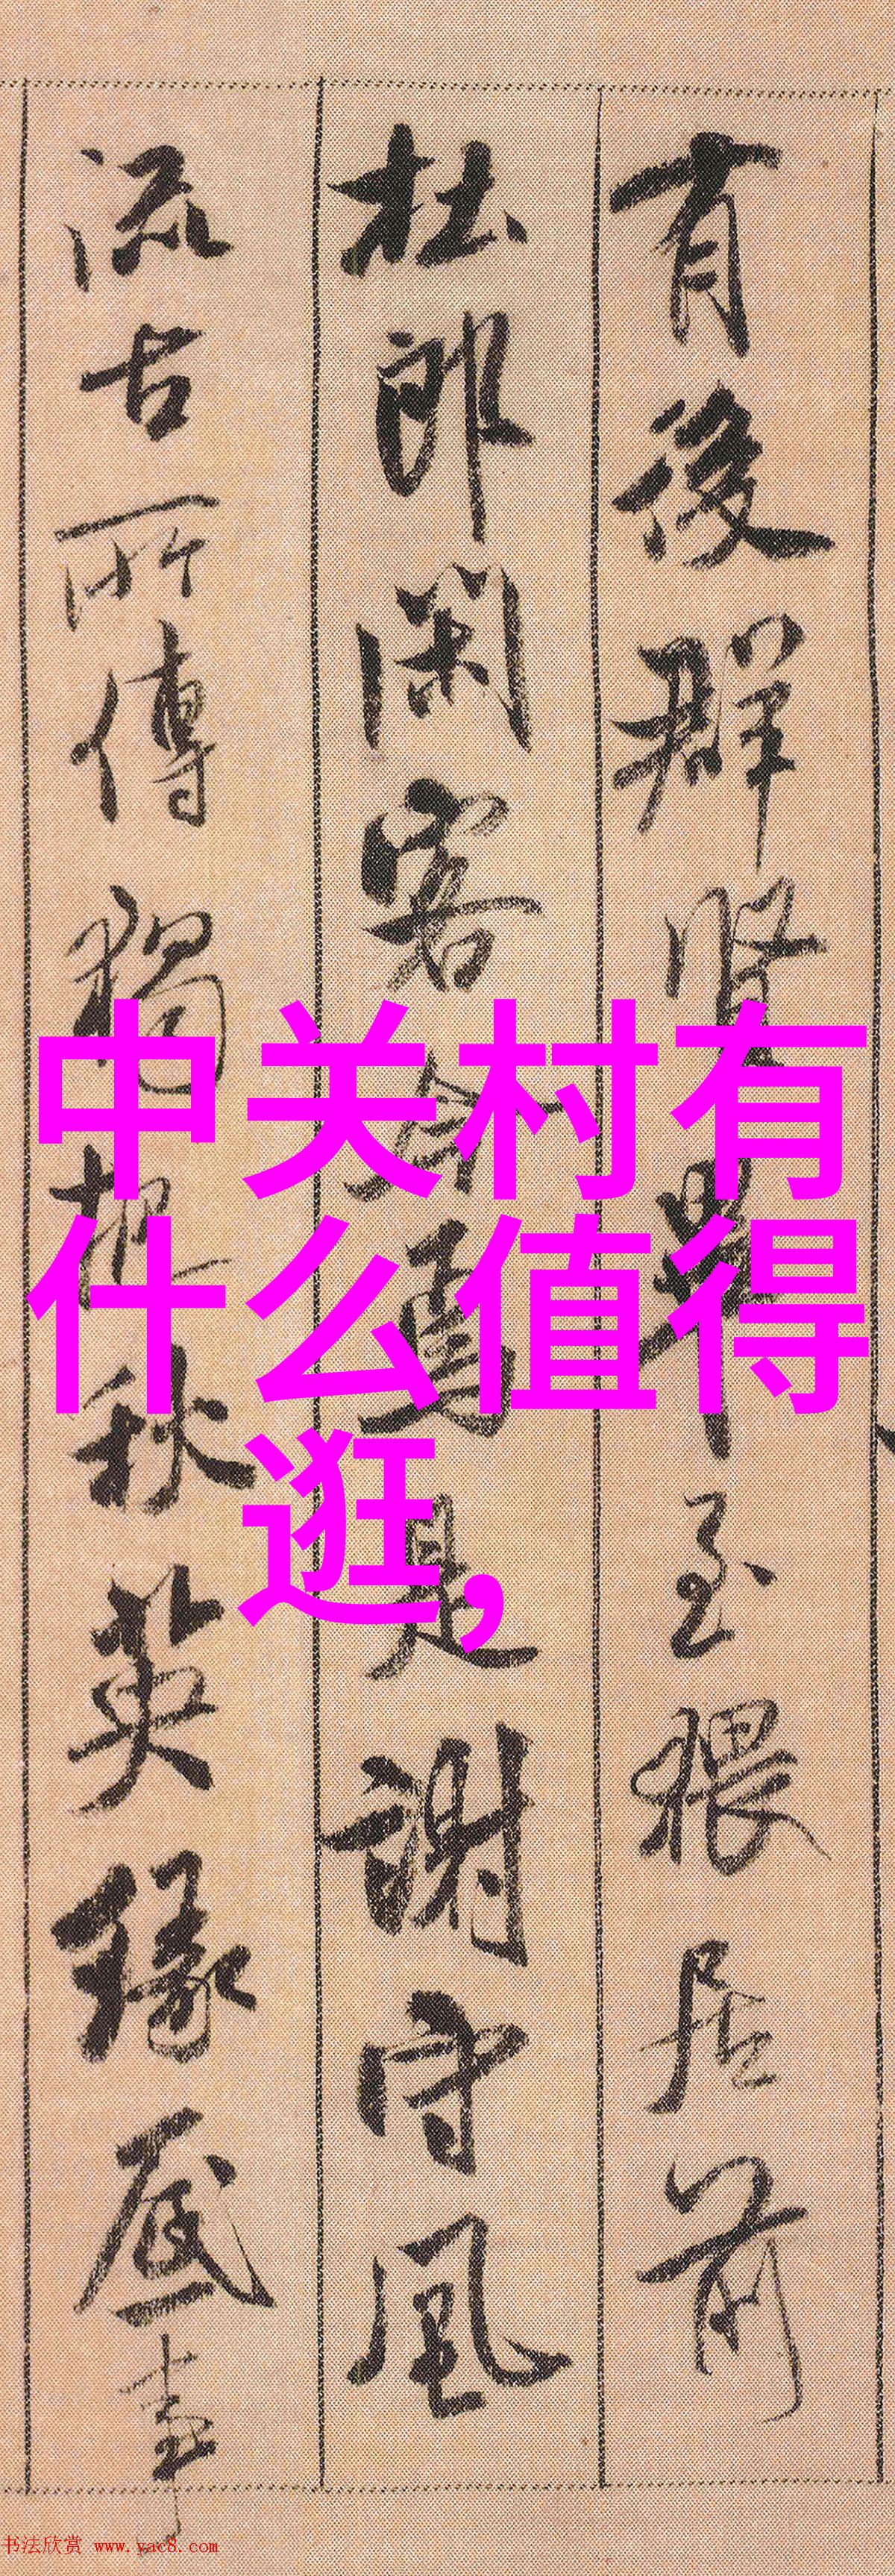 有後群賢畢至猥居前
杜郎閑客今焉是謝守風
流古所傳獨把秋英緣底事
中关村有
什么值得
逛，
书法欣赏 www.yac8.com